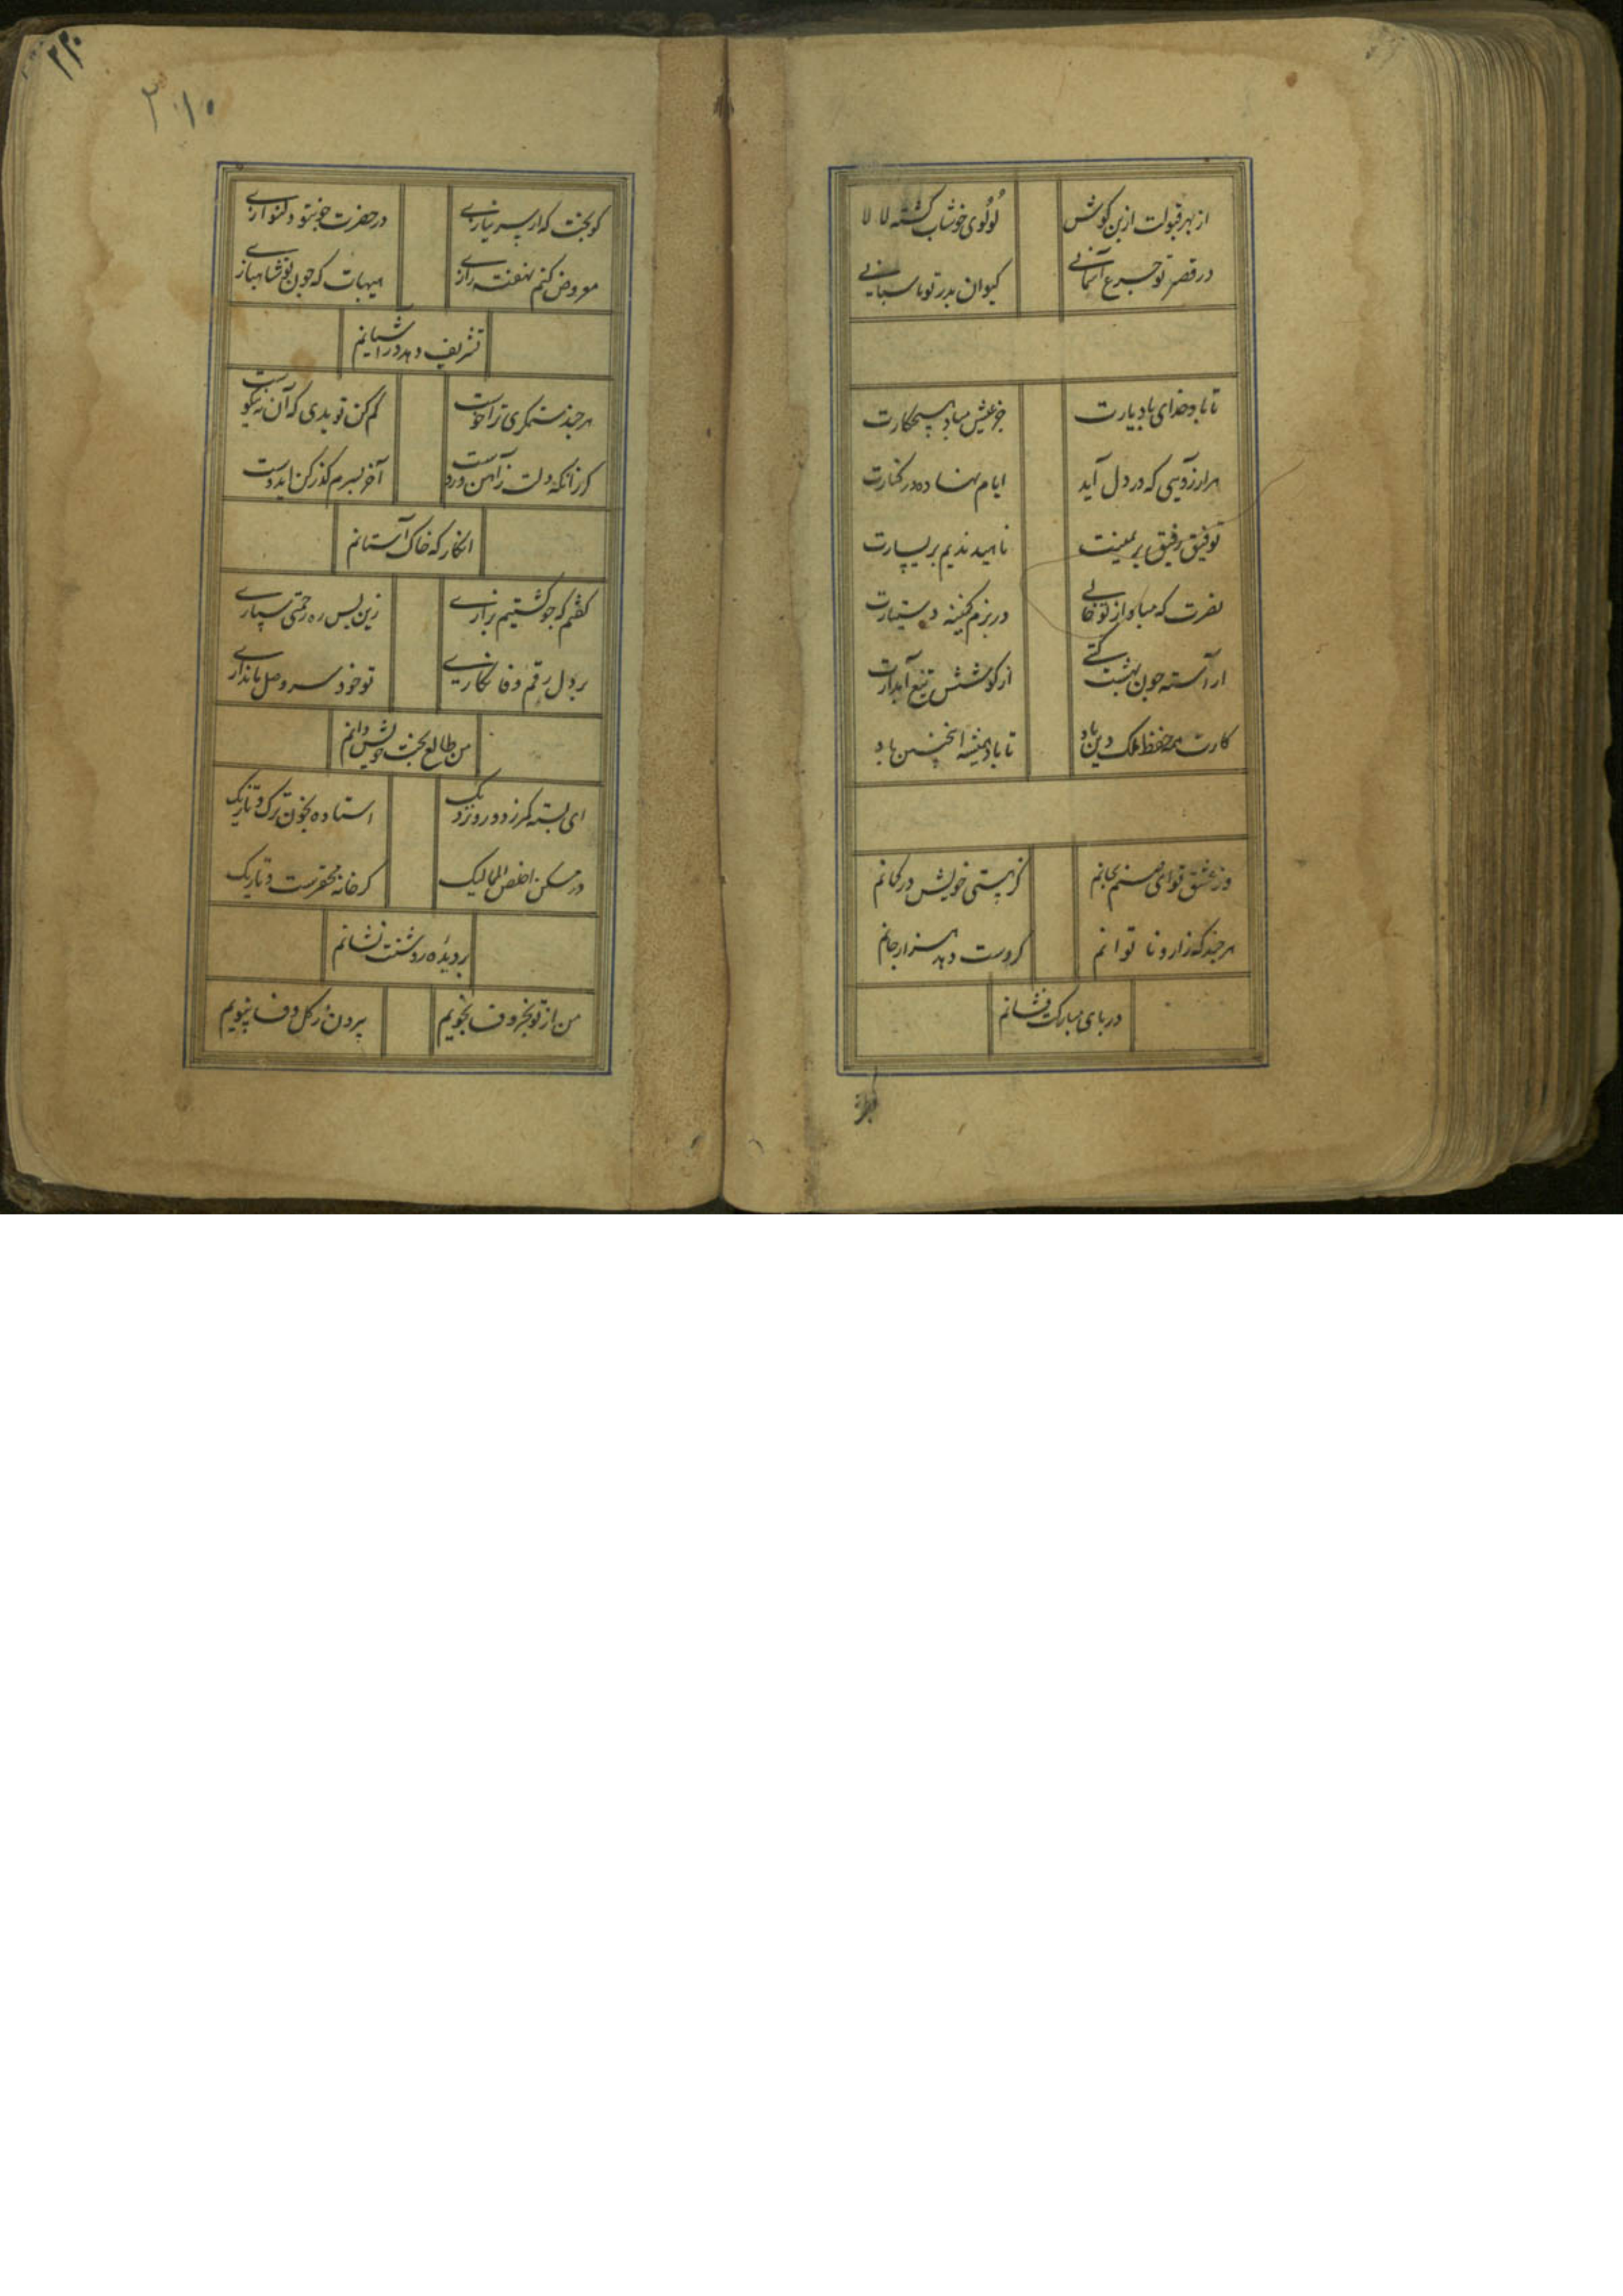 از بهر قبولت ازبن کوش لولوی خوشاب کشته لالا
در قصر تو جرع آسمانی کیوان بدر تو پاسبانی
تا باد خدای باد یارت جز عیش مباد هیچکارت
هر ارزویی که در دل آید ایام نهاده در کنارت
توفیق رفیق بر یمینت ناهید ندیم بر یسارت
نصرت که مباد از تو خالی در بزم کمینه دستیارت
اراسته چون بهشت کیتی از کوشش تیغ آبدارت
کارت همه حفظ ملک و دین باد تا باد همیشه اینچنین باد
وز عشق تو ای صنم بجانم کز هستی خویش در کمانم
هر چند که زار و ناتوانم کر دست دهد هزار جانم
در پای مبارکت فشانم
۲۲۰
۲۰۱۰
کو بخت که از سر نیازی در حضرت چون تو دلنوازی
معروض کنم نهفته رازی هیهات که چون تو شاهبازی
تشریف دهد در آشیانم
هر چند ستمکری تراخوست کم کن تو بدی که آن نه نیکوست
کر زانکه دلت ز آهن و روست آخر بسرم کذر کن ای دوست
انکار که خاک آستانم
کفتم که چو کشتیم بزاری زین پس ره رحمتی سپاری
بر دل رقم وفا نکاری تو خود سر وصل ما نداری
من طالع بخت خویش دانم
ای بسته کمر ز دور و نزدیک استاده بخون ترک و تازیک
در مسکن اخلص الممالیک کر خانه محقرست و تاریک
بر دیده روشنت نشانم
من از تو بجز وفا نجویم بیرون ز کل وفا نبویم